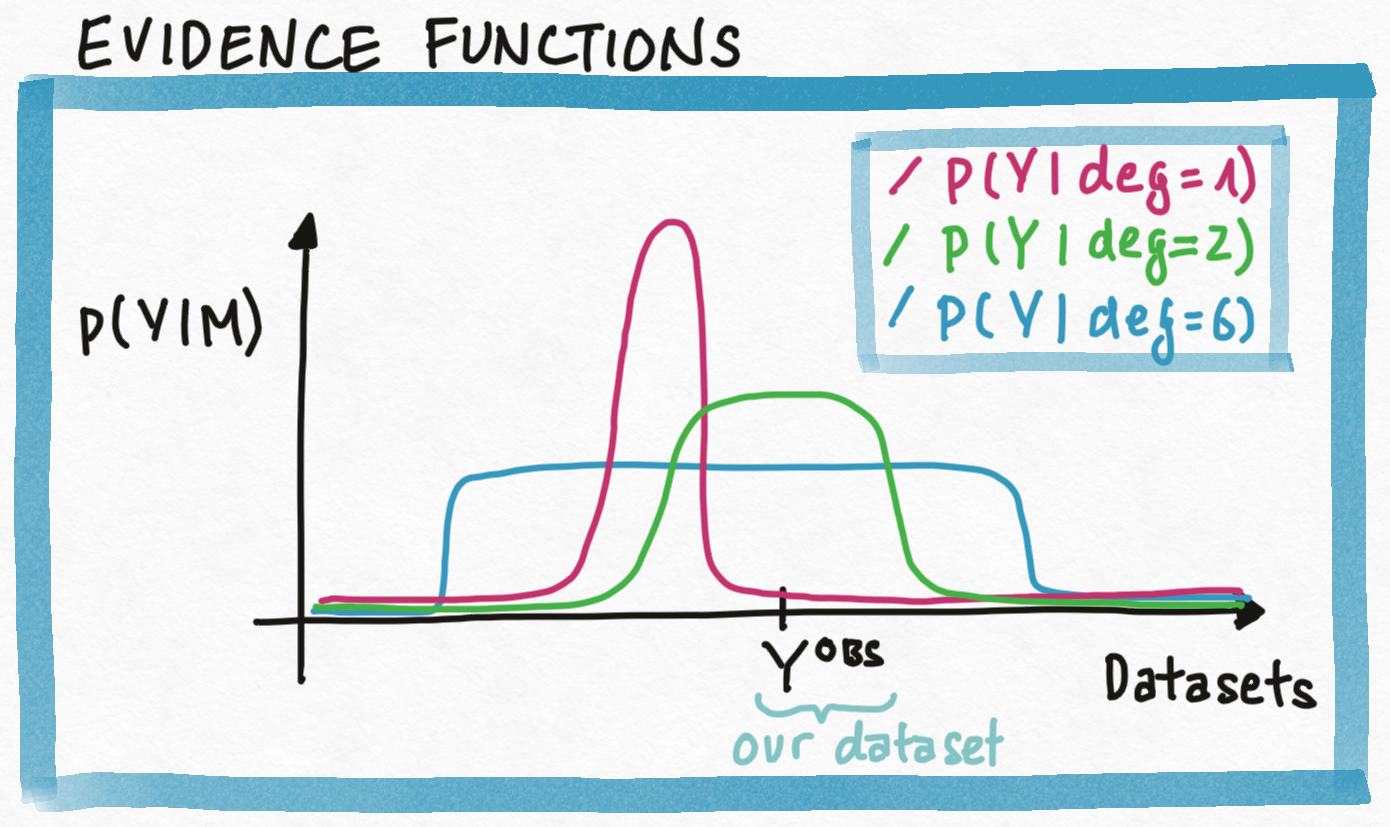 EVIDENCE FUNCTIONS
/ p(Y|deg=1)
/ p(Y|deg=2)
/ p(Y|deg=6)
p(Y|M)
Y^OBS
Datasets
our dataset